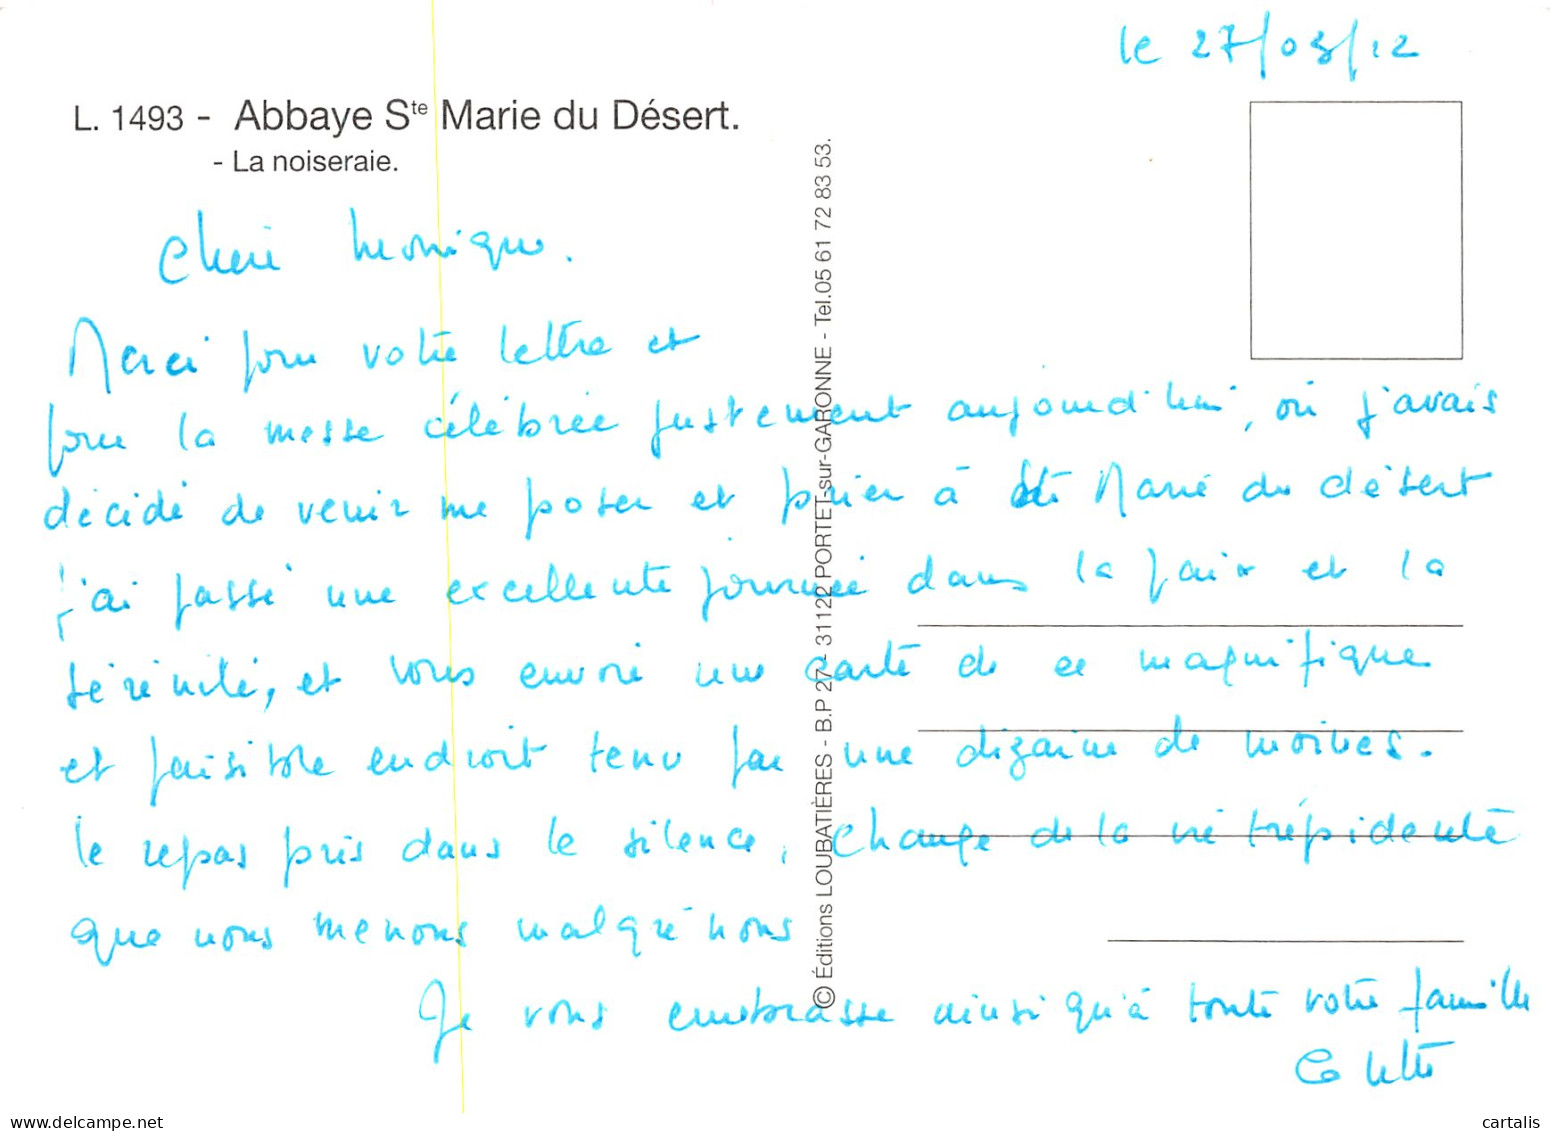 le 27/03/12
L. 1493 - Abbaye Ste Marie du Désert.
- La noiseraie.
Chère Monique.
Merci pour votre lettre et
pour la messe célébrée justement aujourd'hui, où j'avais
décidé de venir me poser et prier à Ste Marie du désert
j'ai passé une excellente journée dans la paix et la
sérénité, et vous envoie une carte de ce magnifique
et paisible endroit tenu par une dizaine de moines.
le repas pris dans le silence, change de la vie trépidente
que nous menons malgré nous
Je vous embrasse ainsi qu'à toute votre famille
Colette
© Éditions LOUBATIÈRES - B.P 27 - 31122 PORTET-sur-GARONNE - Tel.05 61 72 83 53.
cartalis